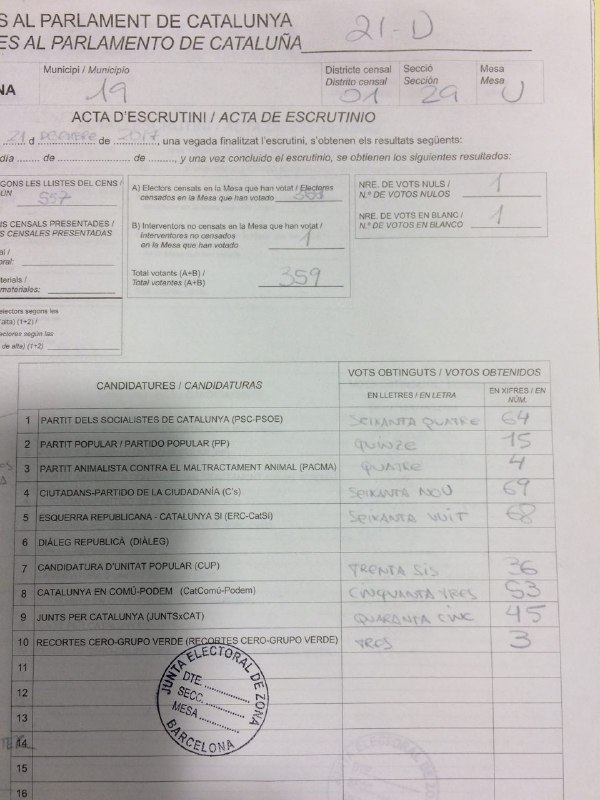 S AL PARLAMENT DE CATALUNYA
ES AL PARLAMENTO DE CATALUÑA 21-D
Municipi / Municipio Districte censal Secció Mesa
Distrito censal Sección Mesa
NA 19 01 29 U
ACTA D'ESCRUTINI / ACTA DE ESCRUTINIO
21 d de 2017, una vegada finalitzat l'escrutini, s'obtenen els resultats següents:
día ....... de ................ de ........, y una vez concluido el escrutinio, se obtienen los siguientes resultados:
GONS LES LLISTES DEL CENS /
ÚN 557
S CENSALS PRESENTADES /
S CENSALES PRESENTADAS
al /
oral:
aterials /
materiales:
electors segons les
alta) (1+2) /
ectores según las
de alta) (1+2)
A) Electors censats en la Mesa que han votat / Electores
censados en la Mesa que han votado
B) Interventors no censats en la Mesa que han votat /
Interventores no censados
en la Mesa que han votado 1
Total votants (A+B) /
Total votantes (A+B) 359
NRE. DE VOTS NULS /
N.º DE VOTOS NULOS 1
NRE. DE VOTS EN BLANC /
N.º DE VOTOS EN BLANCO 1
CANDIDATURES / CANDIDATURAS VOTS OBTINGUTS / VOTOS OBTENIDOS
EN LLETRES / EN LETRA EN XIFRES / EN NÚM.
1 PARTIT DELS SOCIALISTES DE CATALUNYA (PSC-PSOE) SEIXANTA QUATRE 64
2 PARTIT POPULAR / PARTIDO POPULAR (PP) QUINZE 15
3 PARTIT ANIMALISTA CONTRA EL MALTRACTAMENT ANIMAL (PACMA) QUATRE 4
4 CIUTADANS-PARTIDO DE LA CIUDADANÍA (C's) SEIXANTA NOU 69
5 ESQUERRA REPUBLICANA - CATALUNYA SI (ERC-CatSí) SEIXANTA VUIT 68
6 DIÀLEG REPUBLICÀ (DIÀLEG)
7 CANDIDATURA D'UNITAT POPULAR (CUP) TRENTA SIS 36
8 CATALUNYA EN COMÚ-PODEM (CatComú-Podem) CINQUANTA TRES 53
9 JUNTS PER CATALUNYA (JUNTSxCAT) QUARANTA CINC 45
10 RECORTES CERO-GRUPO VERDE (RECORTES CERO-GRUPO VERDE) TRES 3
11
12
13
14
15
16
JUNTA ELECTORAL DE ZONA
DTE.
SECC.
MESA
BARCELONA